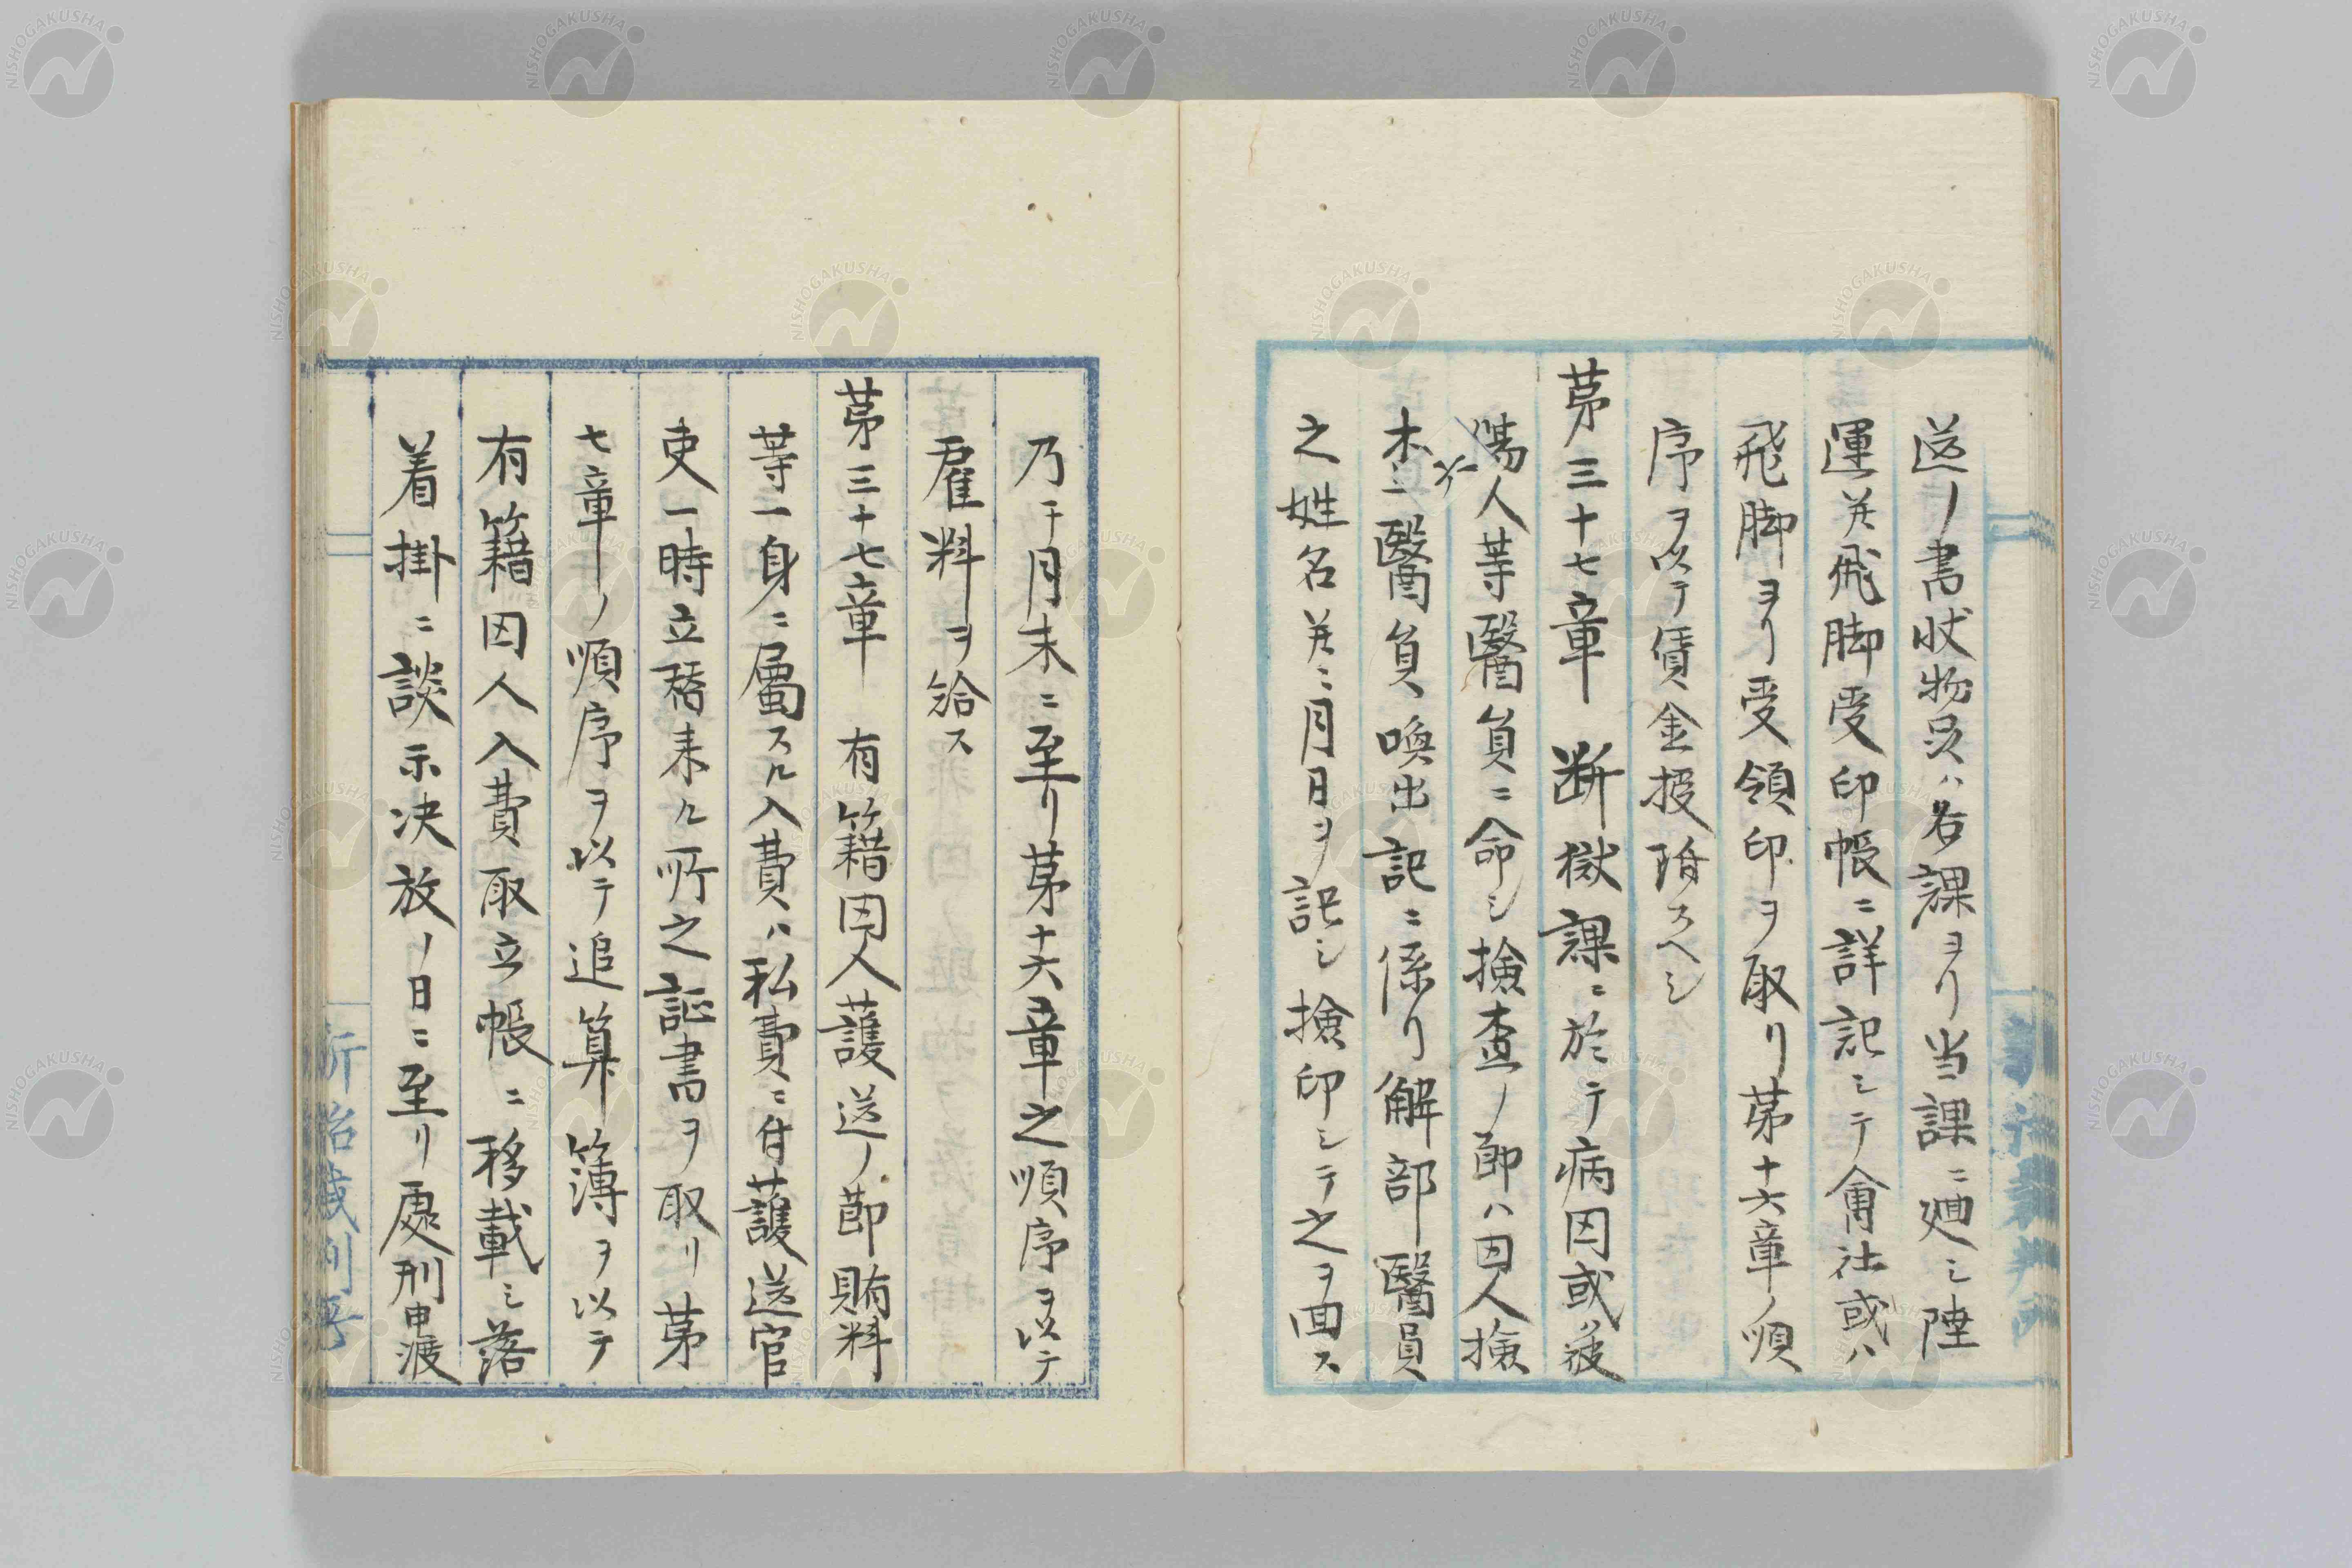 送ノ書状物品ハ各課ヨリ当課ニ廻シ陸
運并飛脚受印帳ニ詳記シテ會社或ハ
飛脚ヨリ受領印ヲ取リ第十六章ノ順
序ヲ以テ賃金授附スヘシ
第三十七章 断獄課ニ於テ病囚或ハ疲
傷人等醫員ニ命シ撿査ノ節ハ囚人撿
本ニ醫員喚出記ニ係リ解部醫員
之姓名并ニ月日ヲ記シ撿印シテ之ヲ回ス
乃于月末ニ至リ第十六章之順序ヲ以テ
雇料ヲ給ス
第三十七章 有籍囚人護送ノ節賄料
等一身ニ屬スル入費ハ私費ニ付護送官
吏一時立替来ル所之証書ヲ取リ第
七章ノ順序ヲ以テ追算簿ヲ以テ
有籍囚人入費取立帳ニ移載シ落
着掛ニ談示決放ノ日ニ至リ處刑申渡
NISHOGAKUSHA